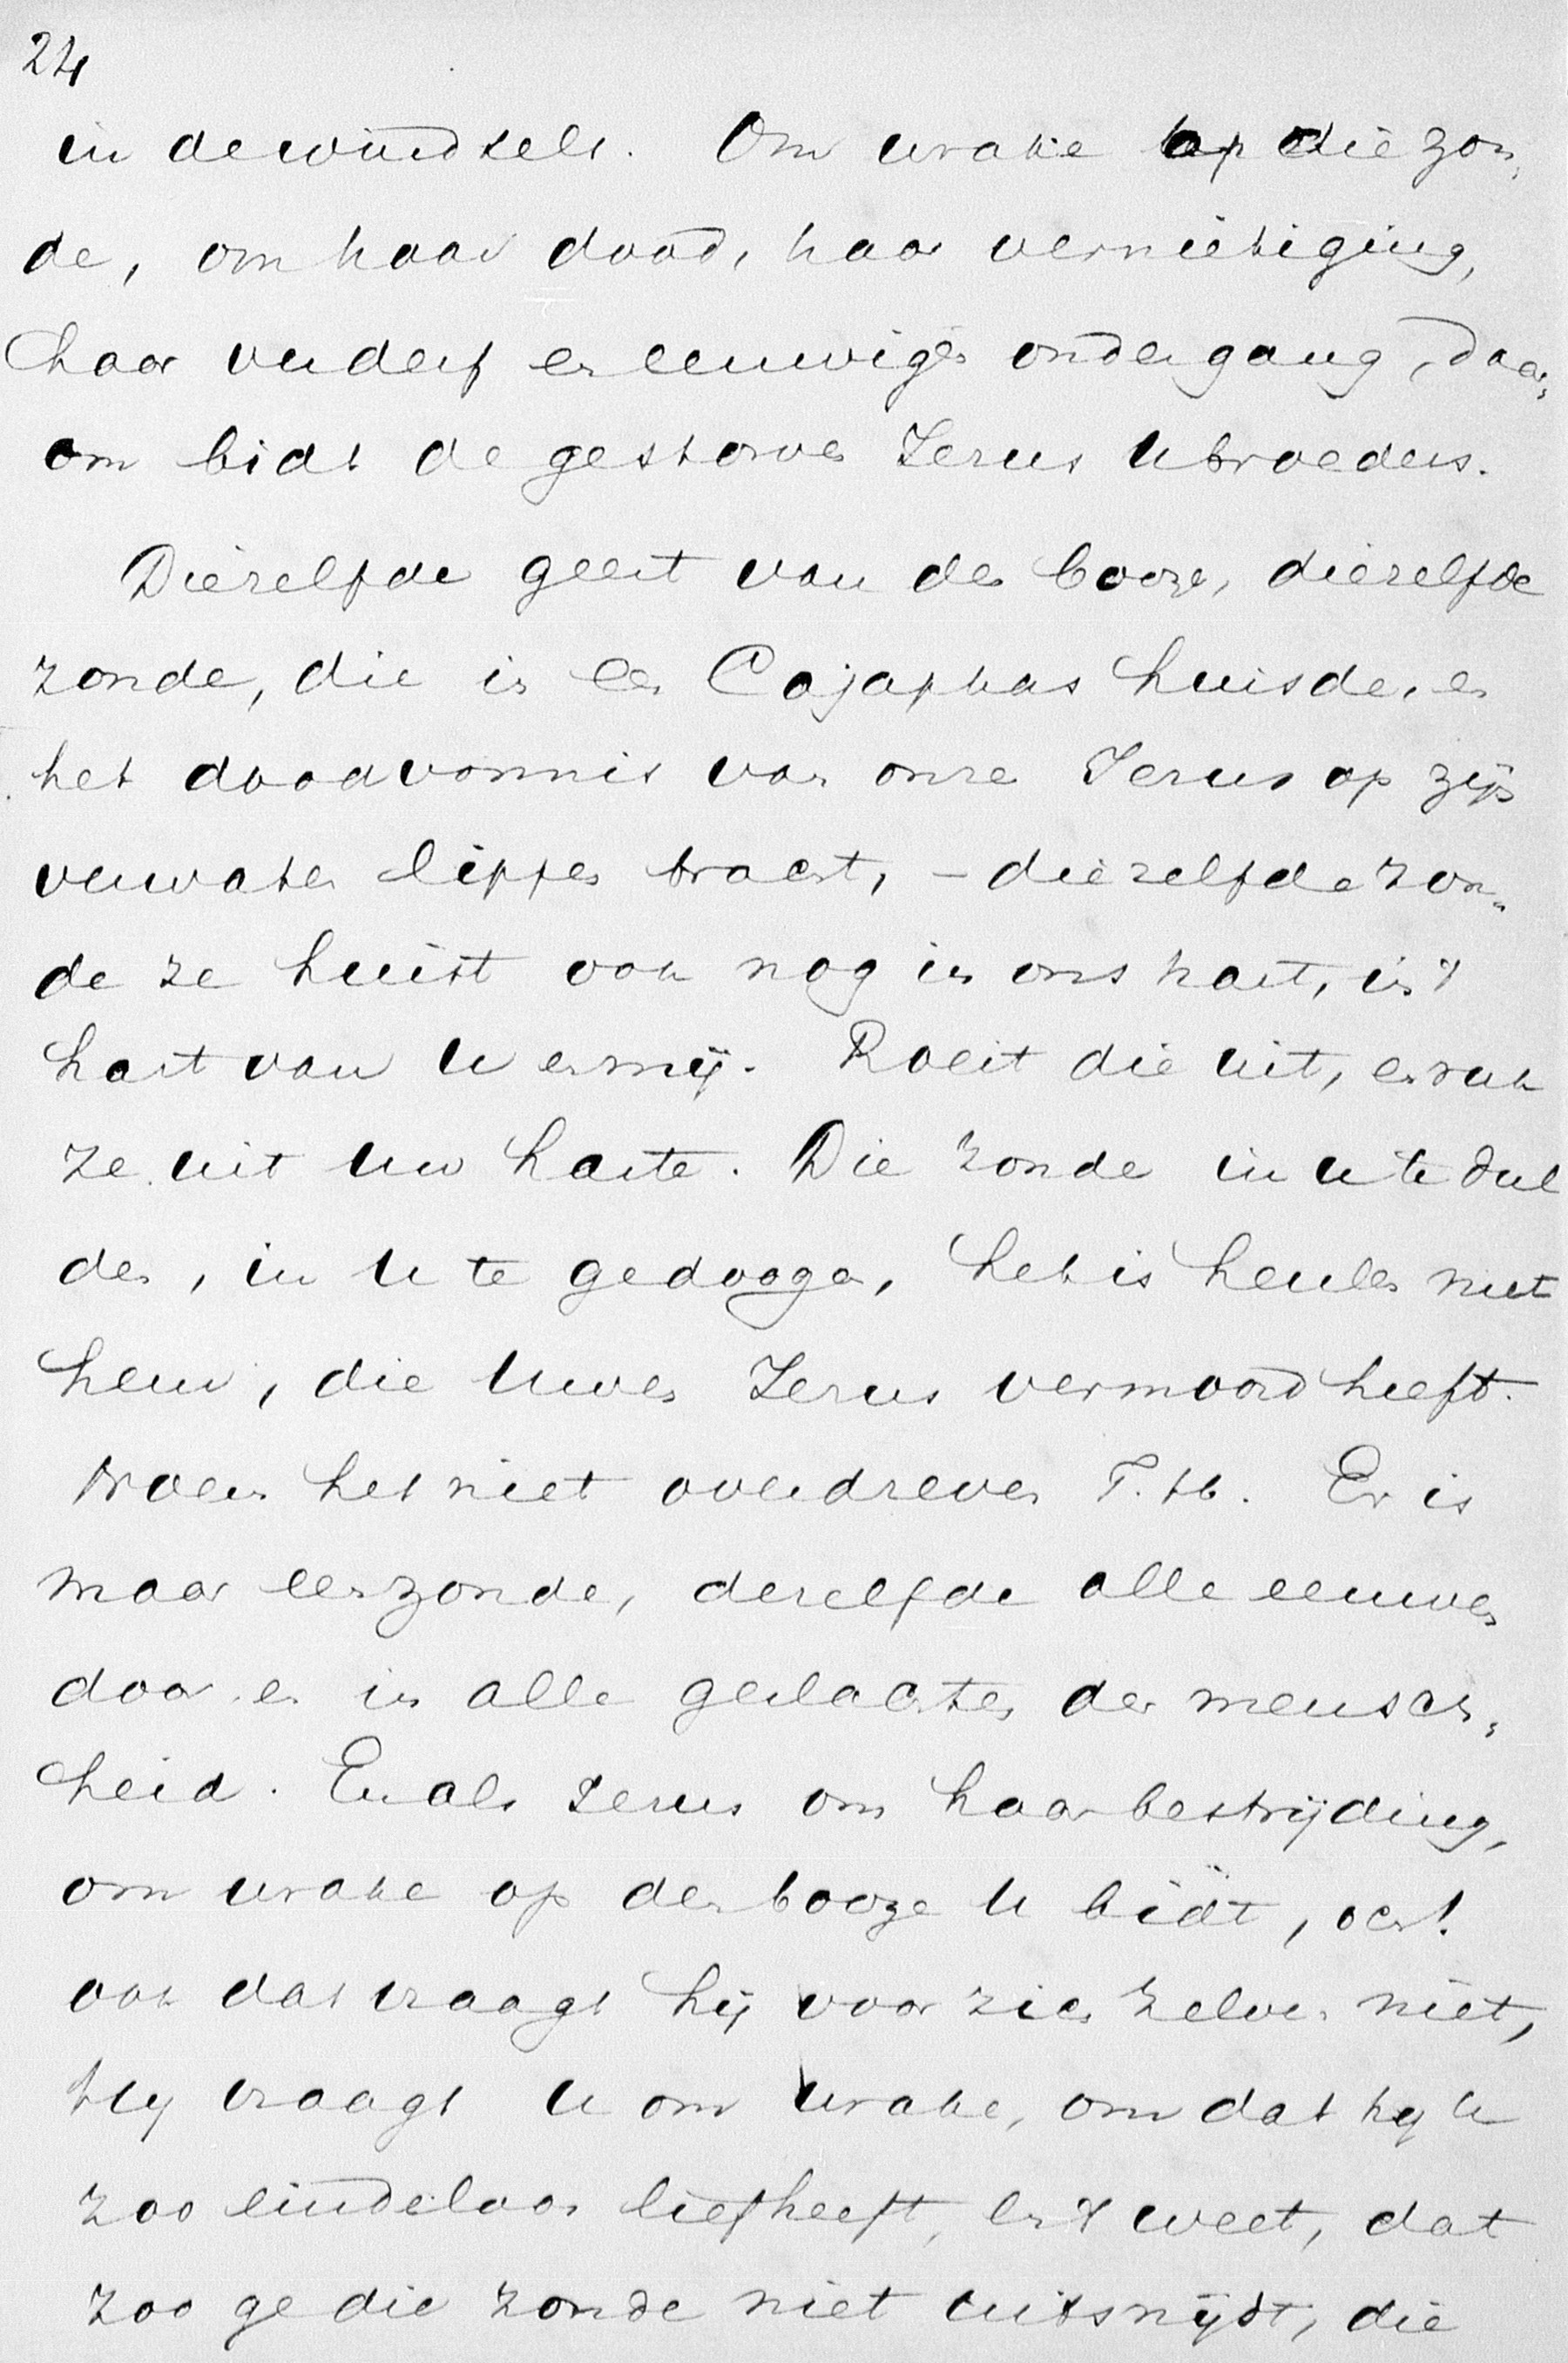 24
in de windsels. Om wrake op die zon-
de, om haar dood, haar vernietiging,
haar verderf en eeuwigen ondergang, daar-
om bidt de gestorven Jezus U broeders.
Diezelfde geest van den booze, diezelfde
zonde, die in een Cajaphas huisde, en
het doodvonnis van onze Jezus op zijn
verwaten lippen bracht, – diezelfde zon-
de ze huist ook nog in ons hart, in 't
hart van U en mij. Roeit die uit, en ruk
ze uit Uw harte. Die zonde in U te dul
den, in U te gedoogen, het is heulen met
hem, die Uwen Jezus vermoord heeft.
Noem het niet overdreven T. H. Er is
maar een zonde, dezelfde alle eeuwen
door en in alle geslachten der mensch-
heid. En als Jezus om haar bestrijding,
om wrake op den booze U bidt, och!
ook dat vraagt hij voor zich zelven niet,
Hij vraagt U om wrake, omdat hij U
zoo eindeloos liefheeft, en 't weet, dat
zoo ge die zonde niet uitsnijdt, die